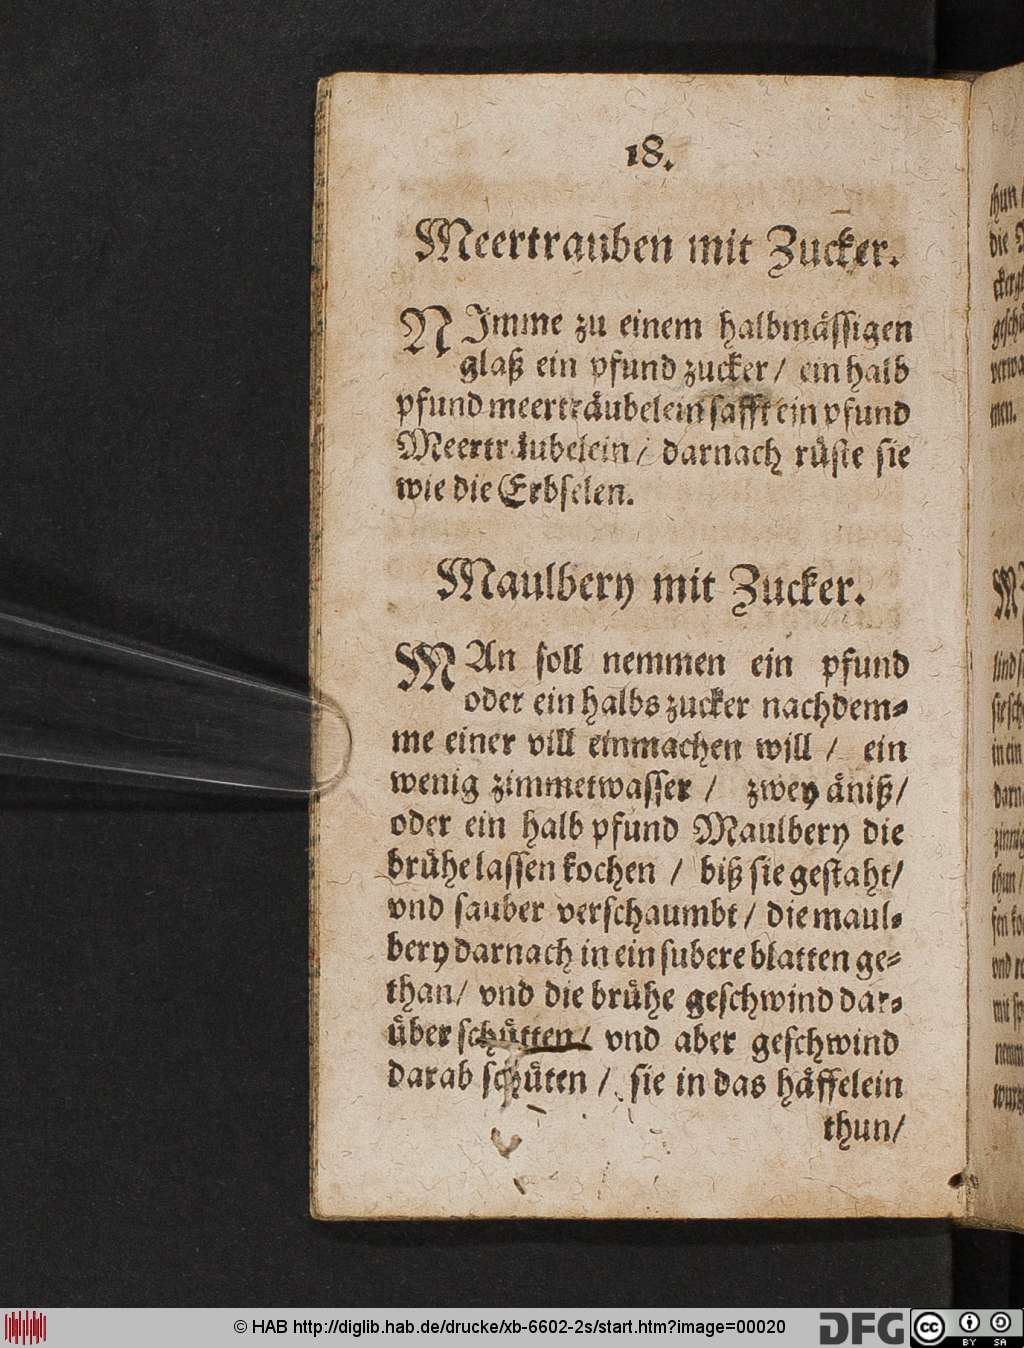 18.
Meertrauben mit Zucker.
NImme zu einem halbmässigen
glaß ein pfund zucker / ein halb
pfund meerträubelein safft ein pfund
Meerträubelein / darnach rüste sie
wie die Erbselen.
Maulbery mit Zucker.
MAn soll nemmen ein pfund
oder ein halbs zucker nachdem-
me einer vill einmachen will / ein
wenig zimmetwasser / zwey äniß /
oder ein halb pfund Maulbery die
brühe lassen kochen / biß sie gestaht /
vnd sauber verschaumbt / die maul-
bery darnach in ein subere blatten ge-
than / vnd die brühe geschwind dar-
über schütten / vnd aber geschwind
darab schüten / sie in das häffelein
thun /
thun /
die
men.
© HAB http://diglib.hab.de/drucke/xb-6602-2s/start.htm?image=00020
DFG
cc
BY SA